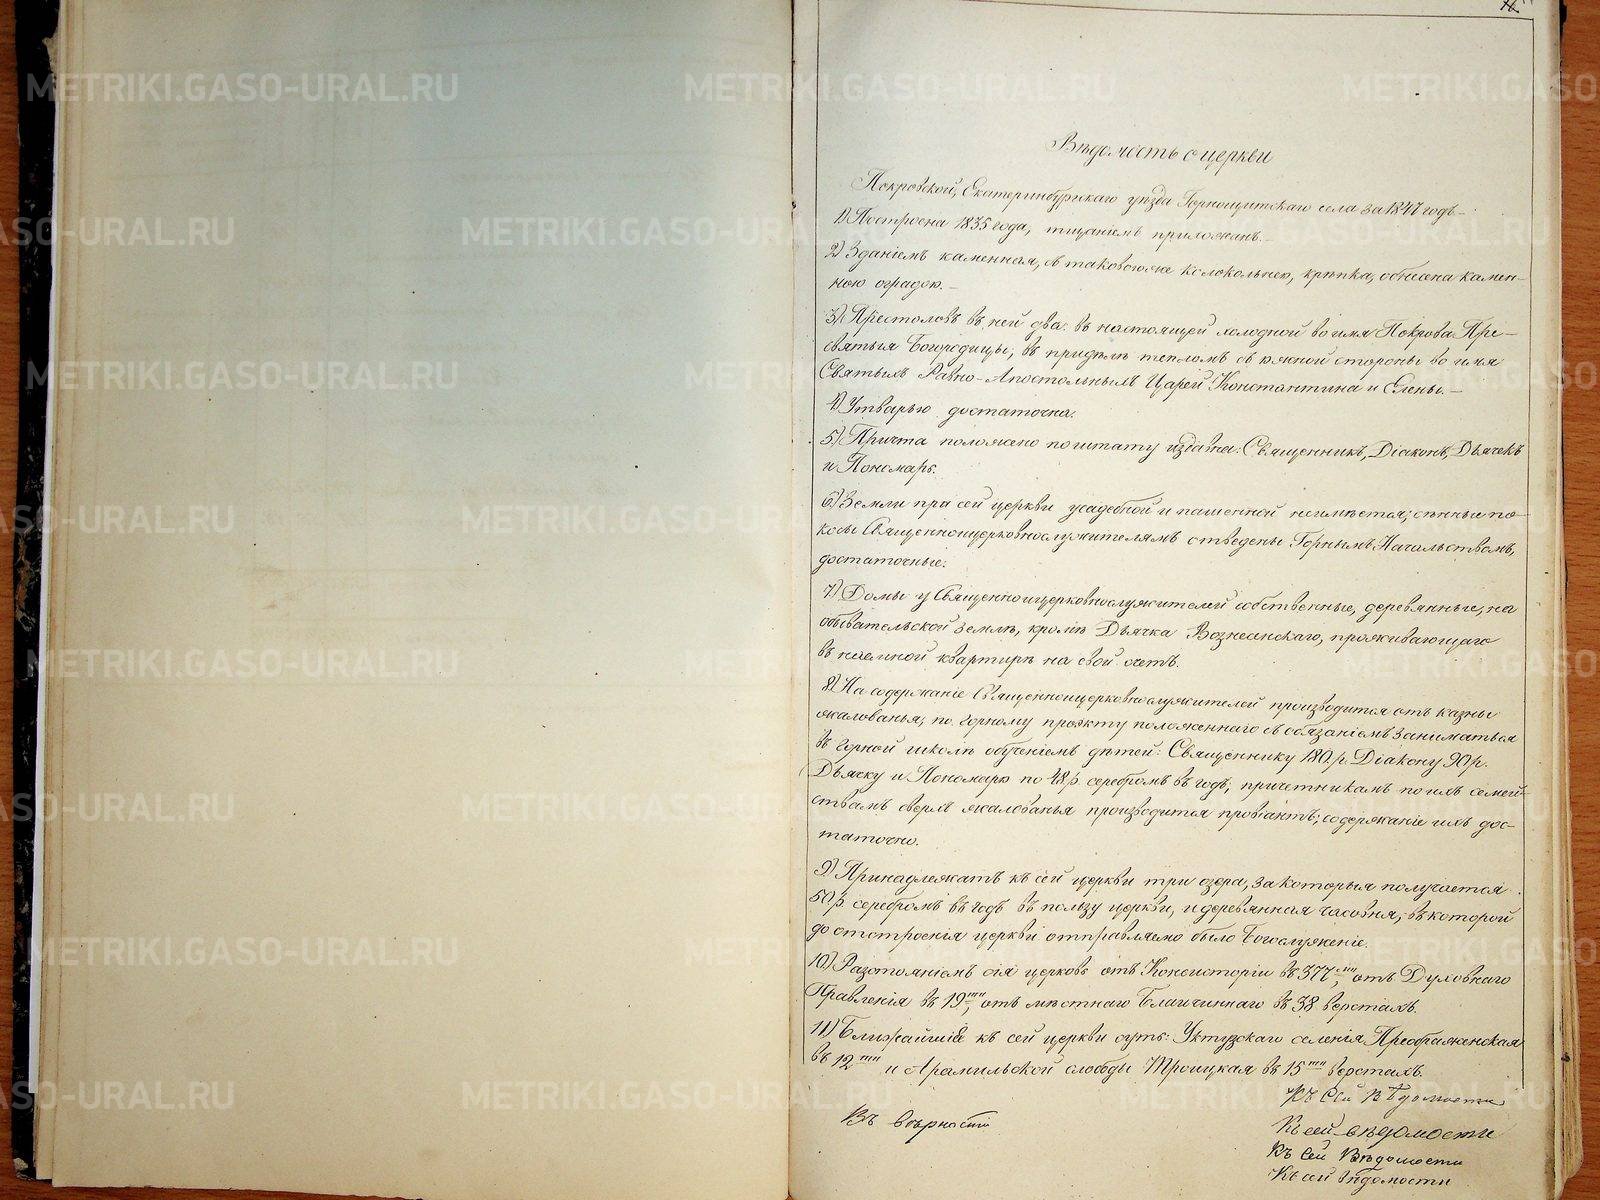 Вѣдомость о церкви
Покровской, Екатеринбургскаго уѣзда Горнощитскаго села за 1847 годъ.–
1) Построена 1835 года, тщаніемъ прихожанъ.–
2) Зданіемъ каменная, съ таковою же колокольнею, крѣпка, обнесена камен–
ною оградою.–
3) Престоловъ въ ней два: въ настоящей холодной во имя Покрова Пре–
святыя Богородицы; въ придѣлѣ тепломъ съ южной стороны во имя
Святыхъ Равно-Апостольныхъ Царей Константина и Елены.–
4) Утварью достаточна.
5) Причта положено по штату издавна: Священникъ, Діаконъ, Дьячекъ
и Пономарь.
6) Земли при сей церкви усадебной и пашенной не имѣется; сѣнные по–
косы Священноицерковнослужителямъ отведены Горнымъ Начальствомъ,
достаточные.
7) Домы у Священноицерковнослужителей собственные, деревянные, на
обывательской землѣ, кромѣ Дьячка Вознесенскаго, проживающаго
въ наемной квартирѣ на свой счетъ.
8) На содержаніе Священноицерковнослужителей производится отъ казны
жалованья, по Горному проэкту положеннаго съ обязаніемъ заниматься
въ Горной школѣ обученіемъ дѣтей: Священнику 180 р. Діакону 90 р.
Дьячку и Пономарю по 48 р. серебромъ въ годъ; причетникамъ по ихъ семей–
ствамъ сверхъ жалованья производится провіантъ; содержаніе ихъ дос–
таточно.
9) Принадлежатъ къ сей церкви три озера, за которыя получается
50 р. серебромъ въ годъ въ пользу церкви, и деревянная часовня, въ которой
до отстроенія церкви отправляемо было Богослуженіе.
10) Разстояніемъ сія церковь отъ Консисторіи въ 377, отъ Духовнаго
Правленія въ 19, отъ мѣстнаго Благочиннаго въ 38 верстахъ.
11) Ближайшіе къ сей церкви суть: Уктузскаго селенія Преображенская
въ 12ти и Арамильской слободы Троицкая въ 15ти верстахъ.
Къ сей вѣдомости
Въ вѣрности
Къ сей вѣдомости
Къ сей Вѣдомости
Къ сей вѣдомости
METRIKI.GASO-URAL.RU